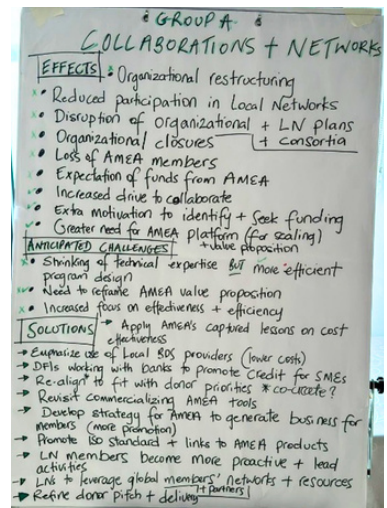 GROUP A
COLLABORATIONS + NETWORKS
EFFECTS
x • Organizational restructuring
x • Reduced participation in Local Networks
x • Disruption of organizational + LN plans
x • Organizational closures + consortia
x • Loss of AMEA members
x • Expectation of funds from AMEA
✓ • Increased drive to collaborate
✓ • Extra motivation to identify + seek funding
✓ • Greater need for AMEA platform (for scaling)
+ value proposition
ANTICIPATED CHALLENGES
x • Shrinking of technical expertise BUT more efficient
program design
x✓ • Need to reframe AMEA value proposition
x • Increased focus on effectiveness + efficiency
SOLUTIONS
→ Apply AMEA's captured lessons on cost
effectiveness
→ Emphasize use of Local BDS providers (lower costs)
→ DFIs working with banks to promote credit for SMEs
→ Re-align to fit with donor priorities * co-create?
→ Revisit commercializing AMEA tools
→ Develop strategy for AMEA to generate business for
members (more promotion)
→ Promote ISO standard + links to AMEA products
→ LN members become more proactive + lead
activities
→ LNs to leverage global members' networks + resources
→ Refine donor pitch + delivery + partners